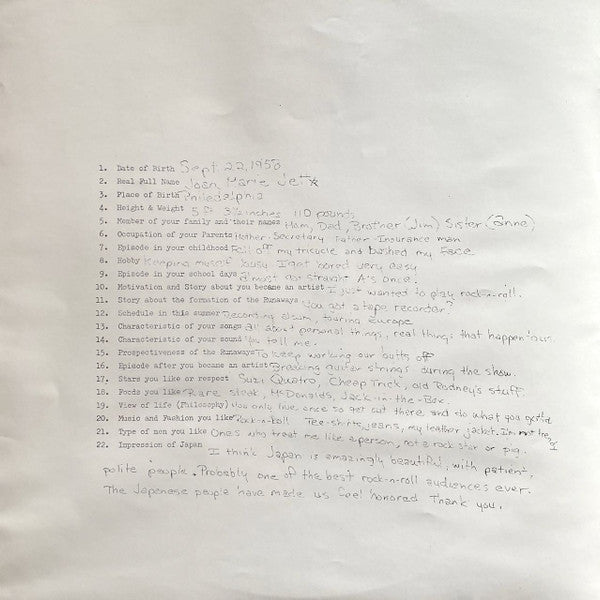 1. Date of Birth Sept. 22, 1958
2. Real Full Name Joan Marie Jett
3. Place of Birth Philadelphia
4. Height & Weight 5 ft. 3½ inches 110 pounds
5. Member of your family and their names Mom, Dad, Brother (Jim) Sister (Anne)
6. Occupation of your Parents Mother-Secretary Father-Insurance man
7. Episode in your childhood Fell off my tricycle and bashed my face
8. Hobby Keeping myself busy I get bored very easy
9. Episode in your school days Almost got straight A's once!
10. Motivation and Story about you became an artist I just wanted to play rock-n-roll.
11. Story about the formation of the Runaways You got a tape recorder?
12. Schedule in this summer Recording album, touring europe
13. Characteristic of your songs all about personal things, real things that happen
14. Characteristic of your sound You tell me.
15. Prospectiveness of the Runaways To keep working our butts off
16. Episode after you became an artist Breaking guitar strings during the show.
17. Stars you like or respect Suzi Quatro, Cheap Trick, old Rodney's stuff.
18. Foods you like Rare steak, McDonalds, Jack-in-the-Box.
19. View of life (Philosophy) You only live once so get out there and do what you gotta
20. Music and Fashion you like Rock-n-Roll Tee-shirts, jeans, my leather jacket.
21. Type of men you like Ones who treat me like a person, not a rock star or pig.
22. Impression of Japan
I think Japan is amazingly beautiful, with patient,
polite people. Probably one of the best rock-n-roll audiences ever.
The Japanese people have made us feel honored Thank you.